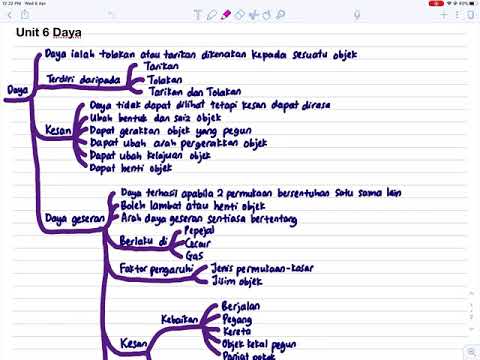 12:22 PM Wed 6 Apr
Unit 6 Daya
Daya
Daya ialah tolakan atau tarikan dikenakan kepada sesuatu objek
Terdiri daripada
Tarikan
Tolakan
Tarikan dan Tolakan
Kesan
Daya tidak dapat dilihat tetapi kesan dapat dirasa
Ubah bentuk dan saiz objek
Dapat gerakkan objek yang pegun
Dapat ubah arah pergerakkan objek
Dapat ubah kelajuan objek
Dapat henti objek
Daya geseran
Daya terhasil apabila 2 permukaan bersentuhan satu sama lain
Boleh lambat atau henti objek
Arah daya geseran sentiasa bertentang
Berlaku di
Pepejal
Cecair
Gas
Faktor pengaruhi
Jenis permukaan-kasar
Jisim objek
Kesan
Kebaikan
Berjalan
Pegang
Kereta
Objek kekal pegun
Panjat pokok